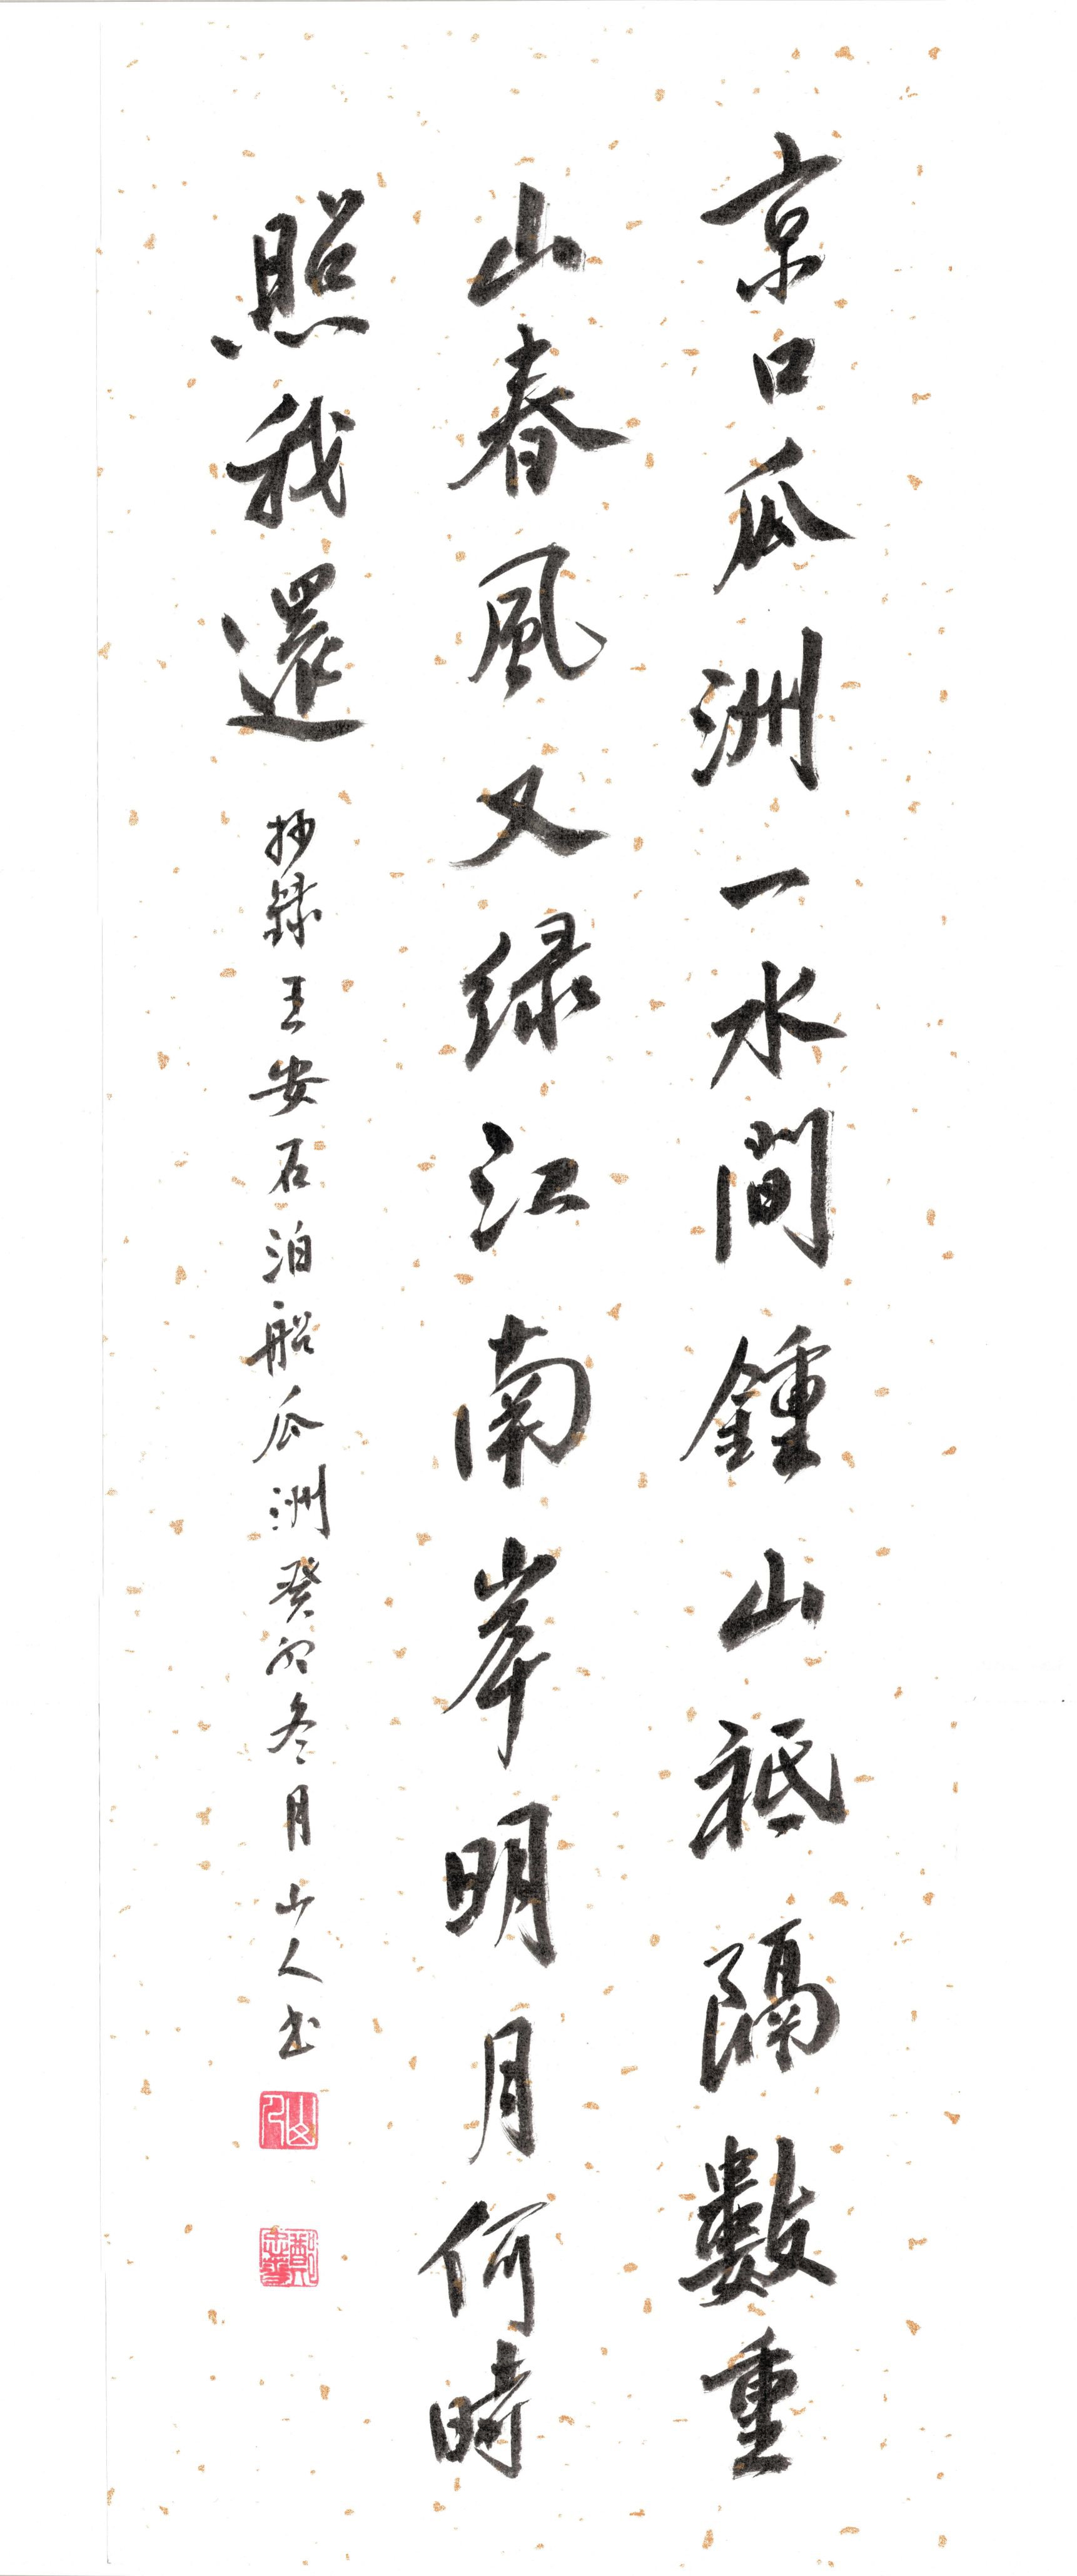 京口瓜洲一水間鍾山祗隔數重
山春風又绿江南岸明月何時
照我還
抄錄王安石泊船瓜洲癸卯冬月山人书